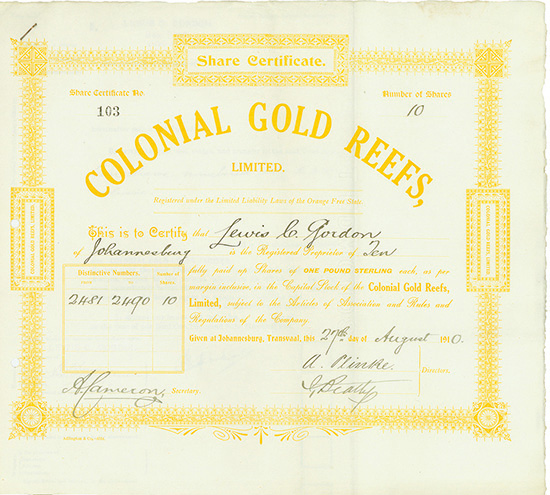 1
Share Certificate.
Share Certificate No
103
Number of Shares
10
COLONIAL GOLD REEFS,
LIMITED.
Registered under the Limited Liability Laws of the Orange Free State.
This is to Certify that Lewis C. Gordon
of Johannesburg is the Registered Proprietor of Ten
fully paid up Shares of ONE POUND STERLING each, as per
margin inclusive, in the Capital Stock of the Colonial Gold Reefs,
Limited, subject to the Articles of Association and Rules and
Regulations of the Company.
Distinctive Numbers. Number of Shares
2481 2490 10
Given at Johannesburg, Transvaal, this 27th day of August 1910.
A. Plinke.
Directors.
G Beatty
A Cameron, Secretary.